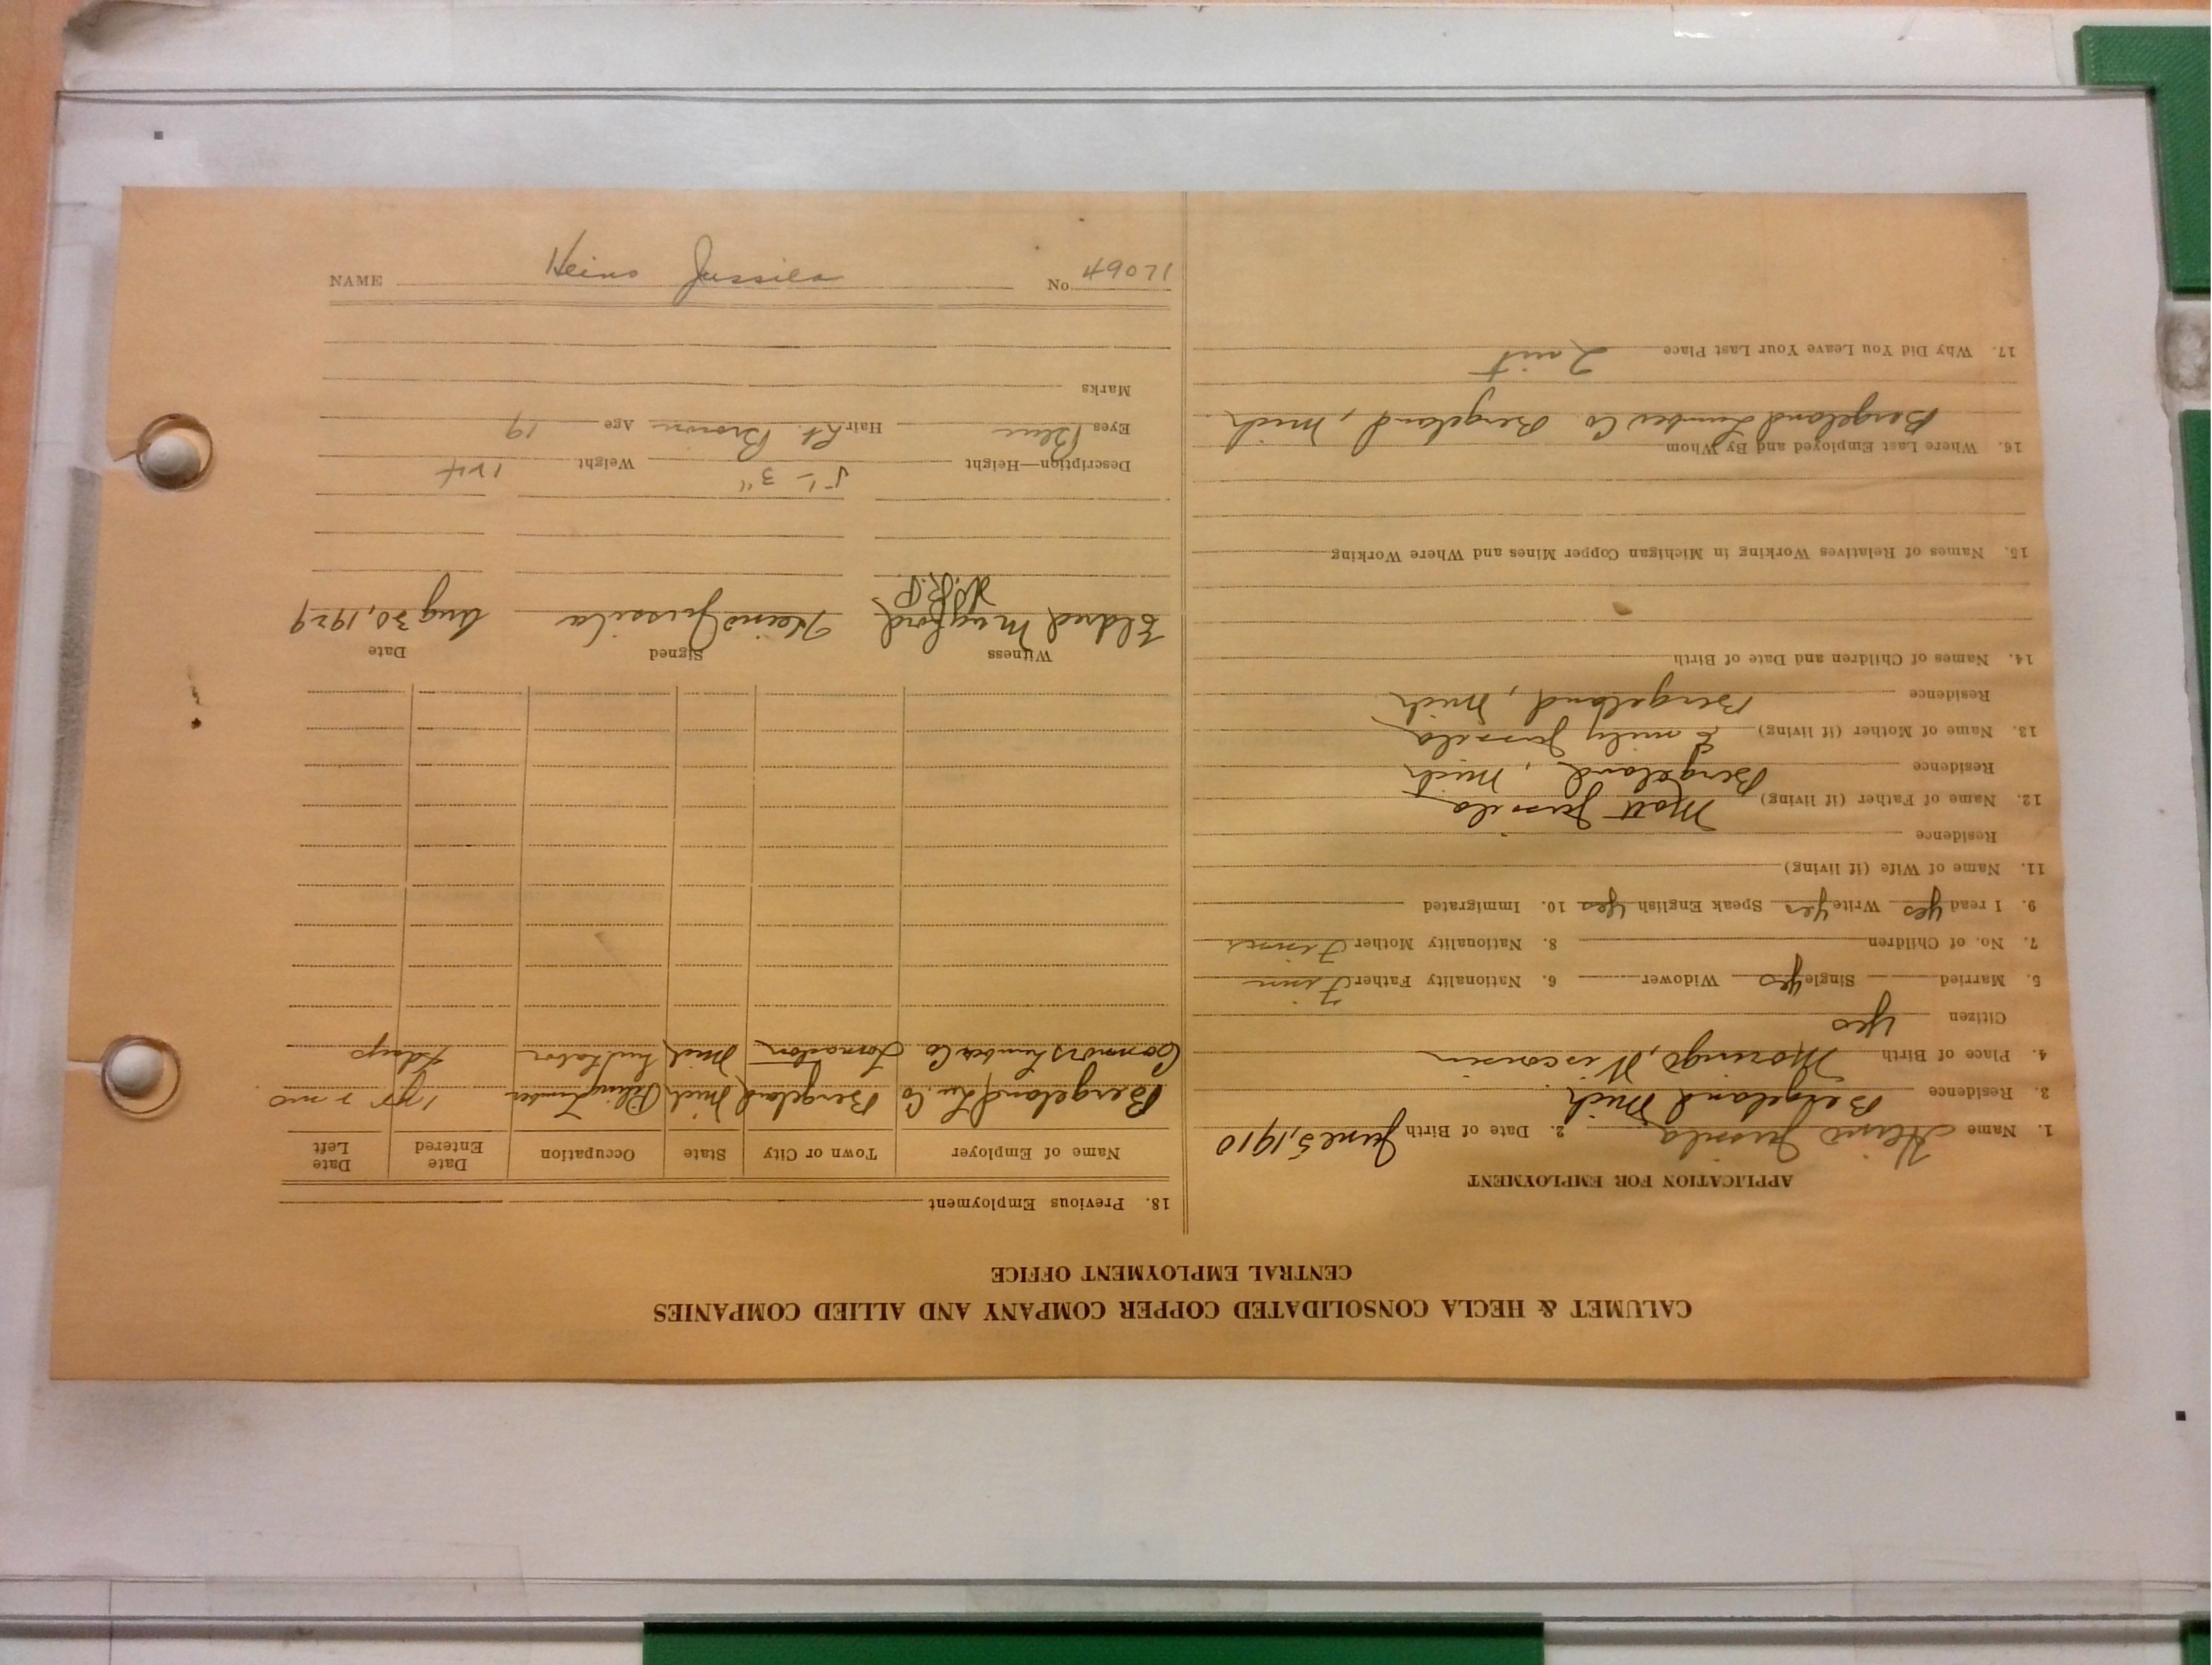 CALUMET & HECLA CONSOLIDATED COPPER COMPANY AND ALLIED COMPANIES
CENTRAL EMPLOYMENT OFFICE
APPLICATION FOR EMPLOYMENT
1. Name Heino Jussila 2. Date of Birth June 5, 1910
3. Residence Bergeland Mich
4. Place of Birth Wisconsin
Citizen Yes
5. Married Single yes Widower 6. Nationality Father Finn
7. No. of Children 8. Nationality Mother Finn
9. I read yes Write yes Speak English yes 10. Immigrated
11. Name of Wife (if living)
Residence
12. Name of Father (if living) Matt Jussila
Residence Bergeland, Mich
13. Name of Mother (if living) Emily Jussila
Residence Bergeland, Mich
14. Names of Children and Date of Birth
15. Names of Relatives Working in Michigan Copper Mines and Where Working
16. Where Last Employed and By Whom
Bergeland Lumber Co. Bergeland, Mich
17. Why Did You Leave Your Last Place Quit
18. Previous Employment
Name of Employer Town or City State Occupation Date Entered Date Left
Bergeland Lu. Co Bergeland Mich Lumber 1 yr 2 mo
Connors Lumber Co Mich
Witness Signed Date
Eldred Mugford Heino Jussila Aug 30, 1929
Description—Height 5'- 3" Weight 124
Eyes Blue Hair Lt. Brown Age 19
Marks
NAME Heino Jussila No. 49071